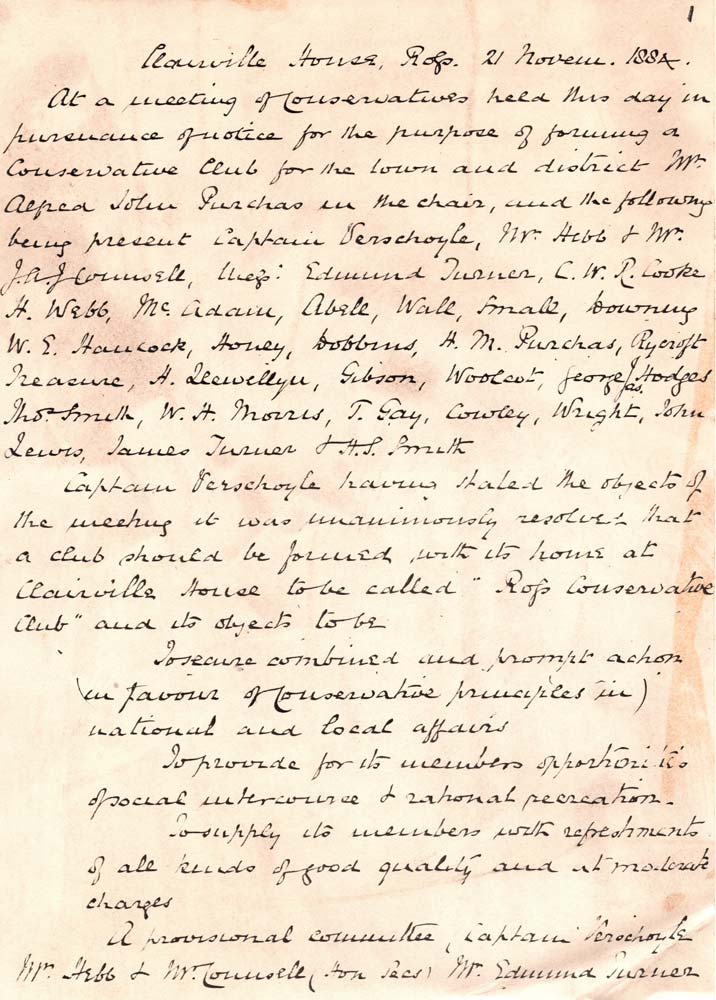 1
Clairville House, Ross. 21 Novem. 1884.
At a meeting of Conservatives held this day in
pursuance of notice for the purpose of forming a
Conservative Club for the town and district Mr.
Alfred John Purchas in the chair, and the following
being present Captain Verschoyle, Mr. Hebb & Mr.
J. A. J. Counsell, Edmund Turner, C. W. R. Cooke
H. Webb, Mc. Adam, Abell, Wall, Small, Downing
W. E. Hancock, Honey, Dobbins, H. M. Purchas, Rycroft
Treasure, H. Llewellyn, Gibson, Woolcot, George Jas. Hodges
Thos. Smith, W. H. Morris, T. Gay, Cowley, Wright, John
Lewis, James Turner & H.S. Smith
Captain Verschoyle having stated the objects of
the meeting it was unanimously resolved that
a club should be formed with its home at
Clairville House to be called "Ross Conservative
Club" and its objects to be
To secure combined and prompt action
(in favour of Conservative principles in)
national and local affairs
To provide for its members opportunities
of social intercourse & rational recreation.
To supply its members with refreshments
of all kinds of good quality and at moderate
charges
A provisional committee, Captain Verschoyle
Mr. Hebb & Mr. Counsell (Hon Secs) Mr. Edmund Turner